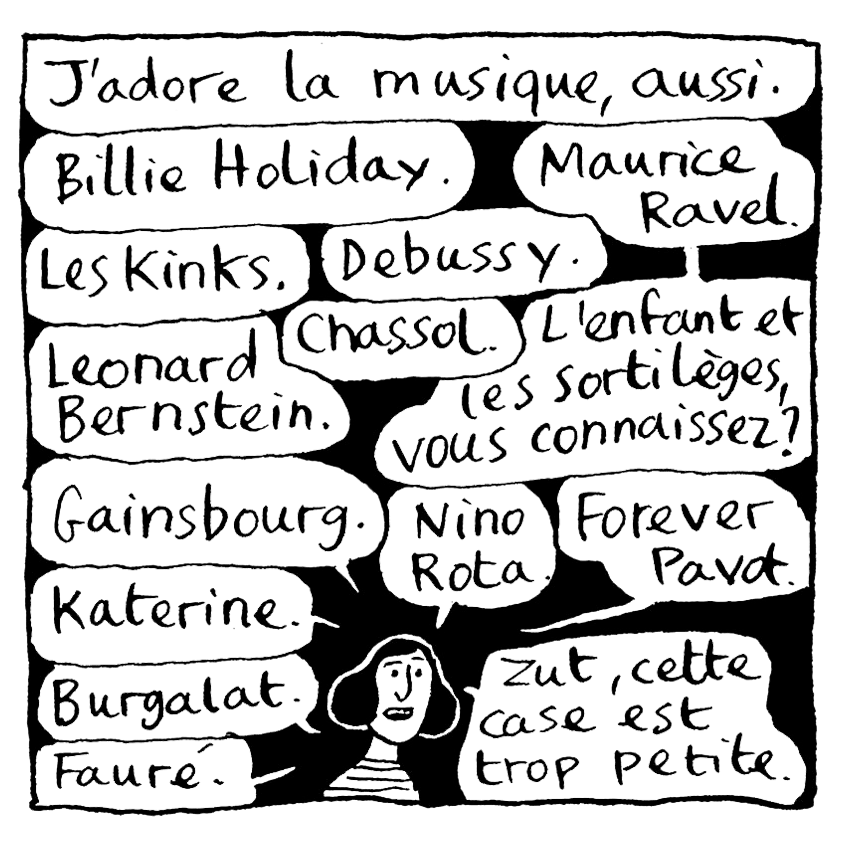 J'adore la musique, aussi.
Billie Holiday.
Maurice
Ravel.
Les Kinks.
Debussy.
Chassol.
L'enfant et
les sortilèges,
vous connaissez?
Leonard
Bernstein.
Gainsbourg.
Nino
Rota.
Forever
Pavot.
Katerine.
Burgalat.
Fauré.
Zut, cette
case est
trop petite.